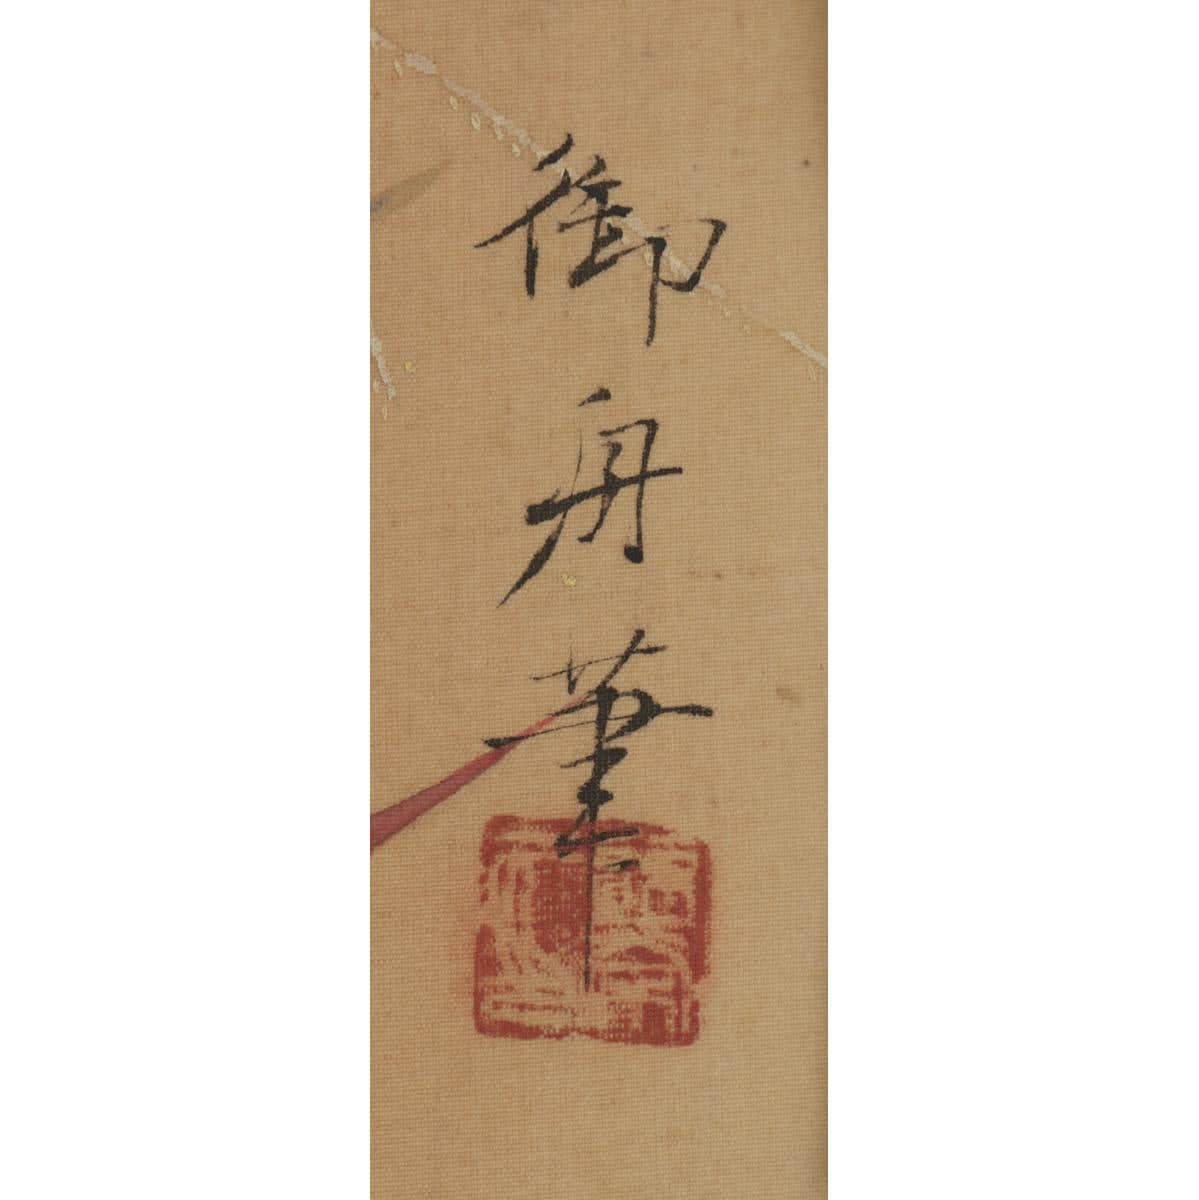 御舟筆